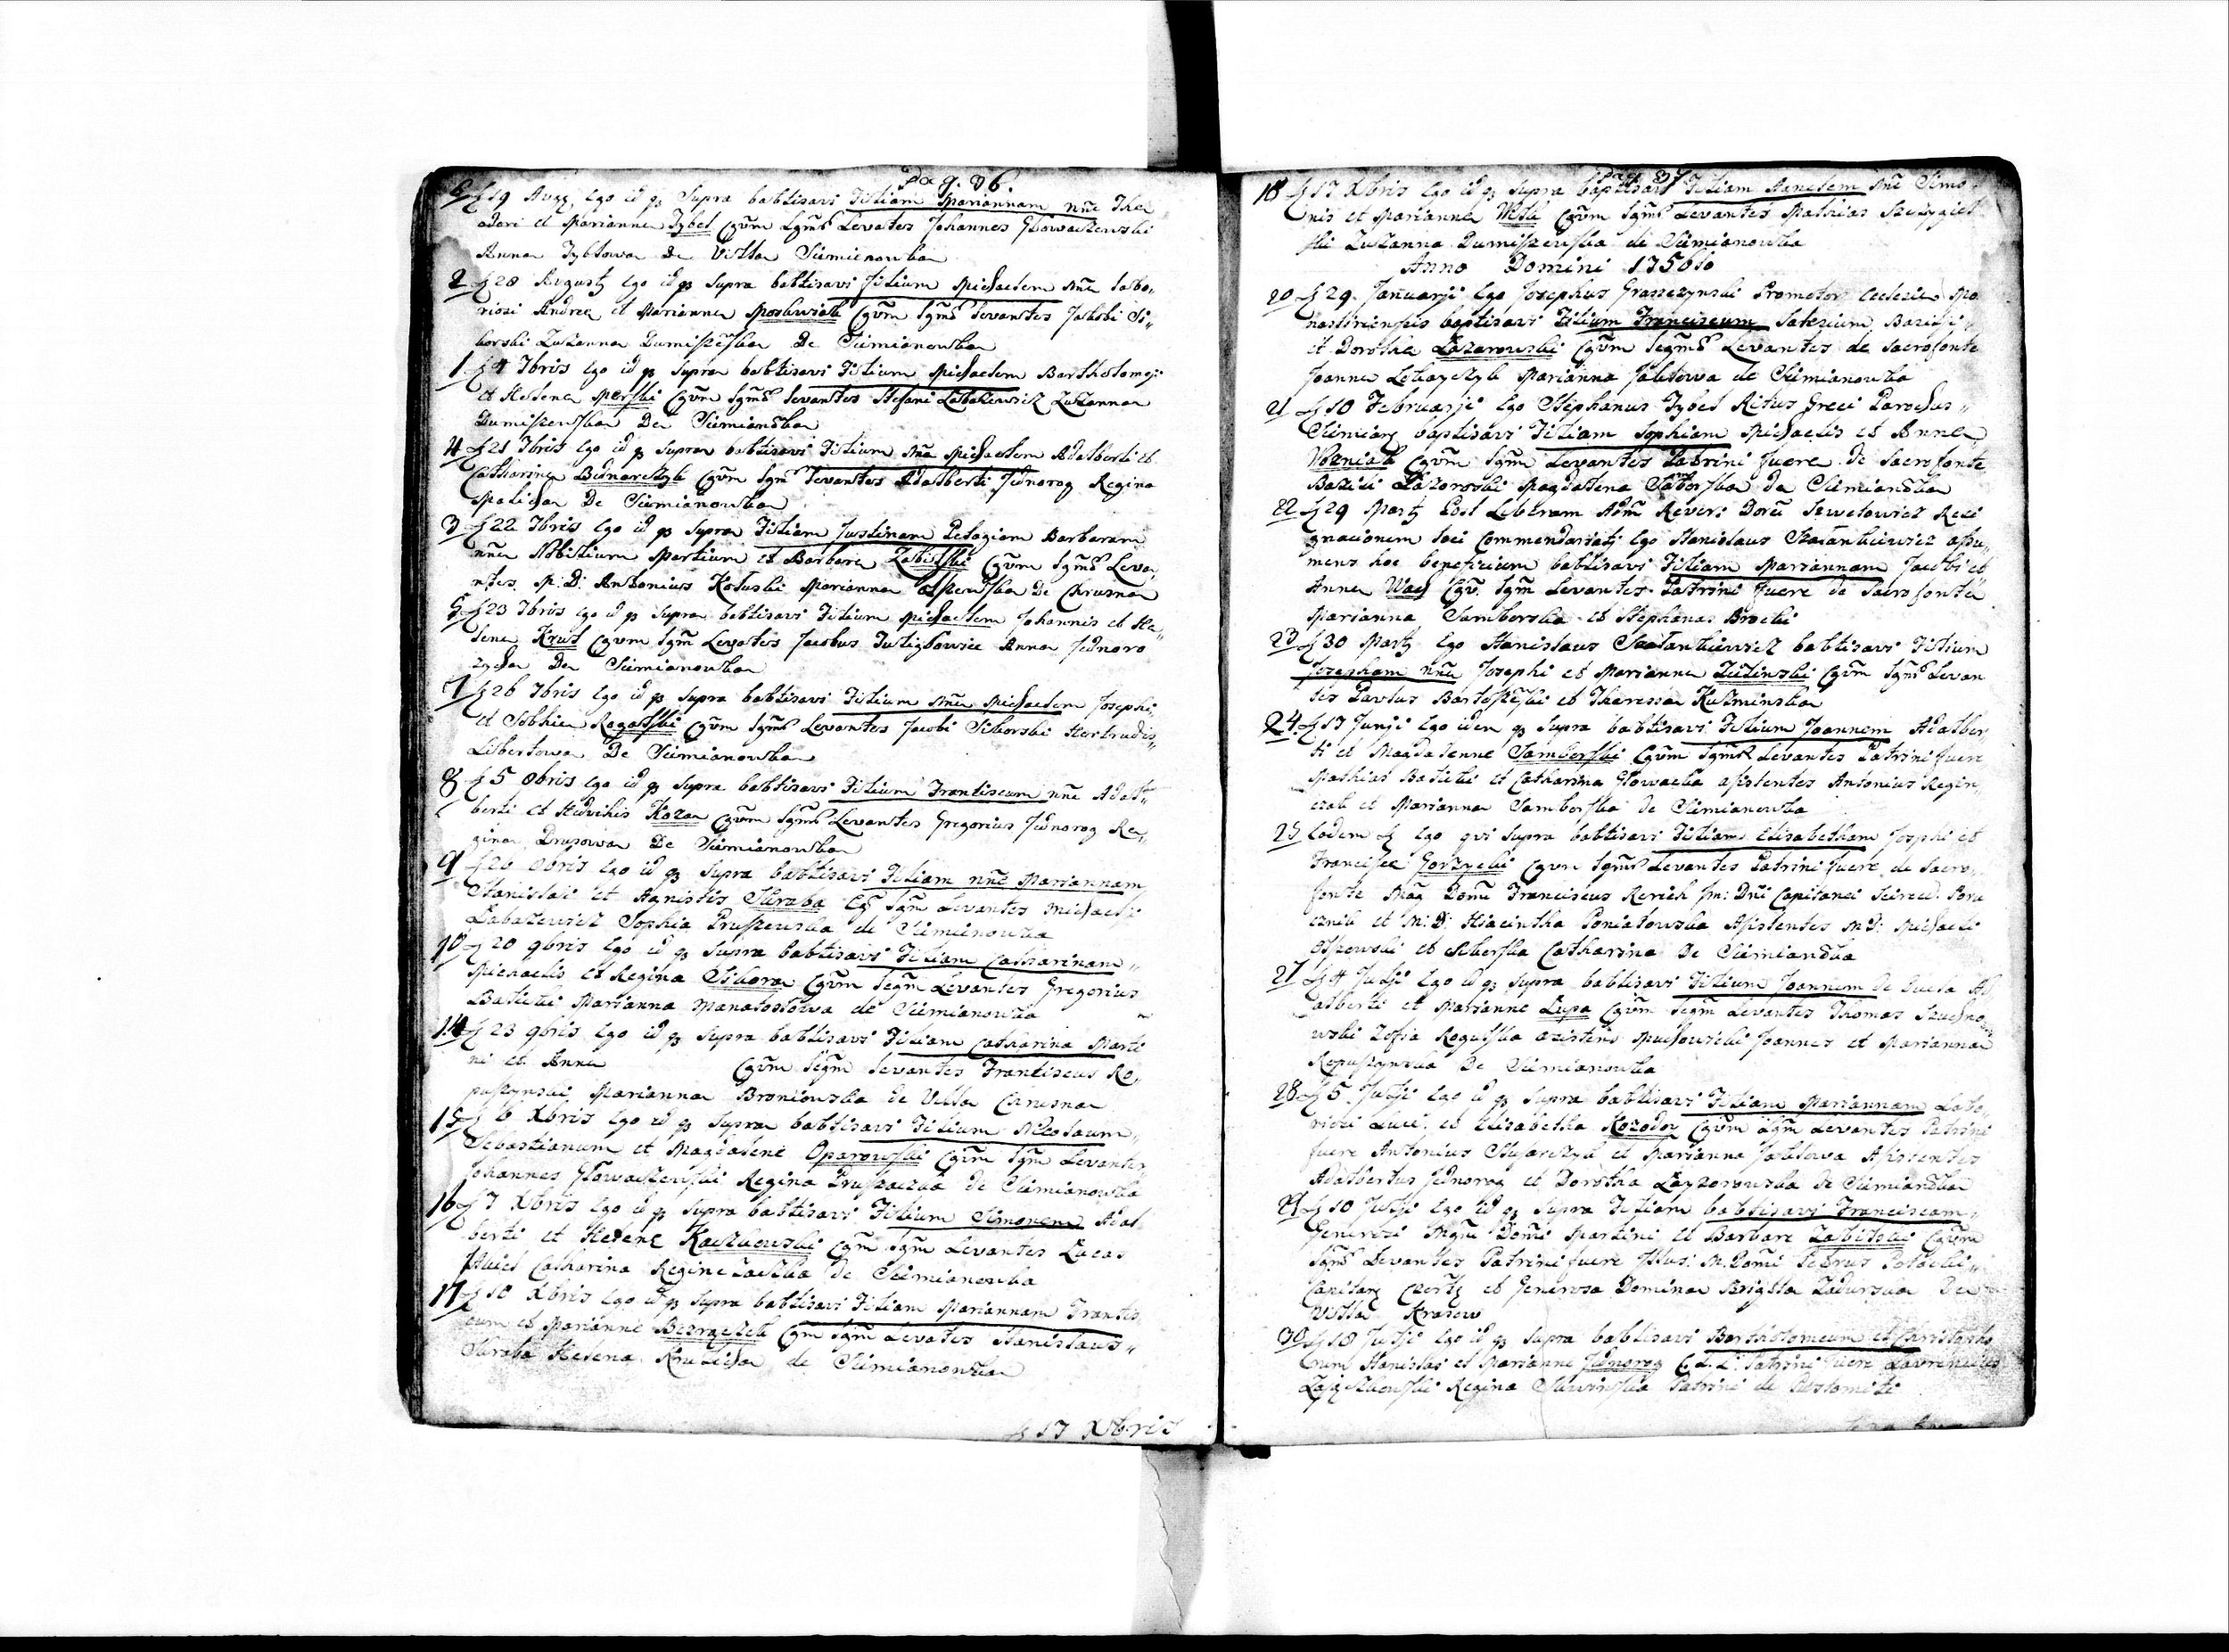 Pag. 36.
6 d 19 Augz, Ego id qz Supra babtisavi Filiam Mariannam nne Theo
dori et Marianna Tybel Cgvm Lgms Levates Johannes Głowaczewski
Anna Tyblowa De Villa Siemienowka
2 d 28 Augusty Ego id qz Supra babtisavi Filium Michaelem nne Labo,
riosi Andrea et Marianna Moskwiak Cgvm Lgms Levantes Jakobi Si,,
korski Zuzanna Dumiszeska De Siemianowka
1 d 4 7bris Ego id qz Supra babtisavi Filium Michaelem Bartholomeji
et Helena Merski Cgvm Lgms Levantes Stefani Labazewicz Zuzanna
Dumiszewska De Siemiandka
4 d 21 7bris Ego id qz Supra babtisavi Filium nne Michaelem Adalberti et
Catharina Bednarczyk Cgvm Lgm Levantes Adalberti Jednorog Regina
Malicha De Siemianowka
3 d 22 7bris Ego id qz Supra Filiam Justinam Pelagiam Barbaram
nne Nobilium Martium et Barbara Zabilski Cgvm Lgms Leva,
ntes M: D: Antonius Kotuski Marianna Olszewska De Chrusna
5 d 23 7bris Ego id qz Supra babtisavi Filium Michaelem Johannis et He,
lena Krut Cgvm Lgm Levates Jacobus Anna Jednoro
zycha De Siemianowka
7 d 26 7bris Ego id qz Supra babtisavi Filium nne Michaelem Josephi,
et Sobhia Rogalski Cgvm Lgms Levantes Jacobi Sikorski Hertrudis,,
Libertowa De Siemianowka
8 d 5 8bris Ego id qz Supra babtisavi Filium Frantiscum nne Adal,,
berti et Hedvikis Koza Cgvm Lgms Levantes Gregorius Jednorog Re,
gina Drusowa De Siemianowka
9 d 20 8bris Ego id qz Supra babtisavi Filiam nne Mariannam
Stanislai et Agnistis Skraba Cg Lgm Levantes Michaeli
Labazewicz Sophia Pruszewska de Siemienowka
10 d 20 9bris Ego id qz Supra babtisavi Filiam Catharinam,,
Michaelis et Regina Sikora Cgvm Legm Levantes Gregorius
Baticki Marianna Manatostowa de Siemianowka
14 d 23 9bris Ego id qz Supra babtisavi Filiam Catharina Marti
ni et Anna Cgvm Legm Levantes Frantiscus Ro,
puszynski, Marianna Broniowska de Villa Chrusna
15 d 6 Xbris Ego id qz Supra babtisavi Filium Nicolaum,,
Sebastianum et Magdalene Oparowski Cgvm Lgm Levantes
Johannes Głowaczewski Regina Pruszaczka de Siemianowka
16 d 7 Xbris Ego id qz Supra babtisavi Filium Simonem Adal,
berti et Helene Kaczkowski Cgm Lgm Levantes Lucas
Catharina Regine de Siemianowka
17 d 10 Xbris Ego id qz Supra babtisavi Filiam Mariannam Francis
cum et Marianne Cgm Lgm Levates Stanislaus,,
Skraba Helena Krulicha de Siemianowka
d 17 Xbris
Pag 37
18 d 17 Xbris Ego id qz Supra baptisavi Filiam Agnetem nne Simo,
nis et Marianna Witk Cgvm Lgms Levantes Mathias Szczygiel
ski Zuzanna Dumiszewska di Siemianowka
Anno Domini 1756to
20 d 29 Januarji Ego Josephus Graszczynski Promotor Eclesie Mo
nastiriensis baptisavi Filium Franciscum Baziliji
et Dorothia Lazarowski Cgvm Legms Levantes de Sacro fonte
Joanna Lebayczyk Marianna Jakłowa de Siemianowka
21 d 10 Februarji Ego Stephanus Tybel Ritus Greci Parochus,,
Siemień baptisavi Filiam Sophiam Michaelis et Anna
Wozniak Cgvm Lgm Levantes Patrini fuere de Sacro fonte
Bazili Lazoroski Magdalena Saborska de Siemiandka
22 d 29 Marty Post Liberam Adm Reveri Domi Sawelowicz Resi
gnacionem loci Commendariatj Ego Stanislaus Szatankiewicz assu,
mens hoc beneficium babtisavi Filiam Mariannam Jacobi et
Anna Wach Cgv Lgm Levantes Patrini fuere de Sacro fonte
Marianna Samborska et Stephanas Brocki
23 d 30 Marty Ego Stanislaus Szatankiewicz babtisavi Filium
Josepham nne Josephi et Marianna Zielinski Cgvm Lgms Levan
tes Paulus Bartoszeski et Tharessa Kuzminska
24 d 17 Junji Ego idem qz Supra babtisavi Filium Joannem Adalber
ti et Magdalenne Samborski Cgvm Lgms Levantes Patrini fuere
Mathias Baticki et Catharina Głowacka assistentes Antonius Regin,
czak et Marianna Samborska de Siemianowka
25 Eodem d Ego qvi Supra babtisavi Filiam Elisabetham Josphi et
Francisce Gorzycki Cgvm Lgms Levantes Patrini fuere de Sacro,
fonte Mag Domi Franciscus Rerich M: Dni Capitanei Poru
cznik et M: D: Hiacintha Poniatowska Assistentes M D: Michaeli
Olszowski et Sikorska Catharina De Siemiandka
27 d 4 Julji Ego id qz Supra babtisavi Filium Joannem de Ad
alberti et Marianne Lupa Cgvm Legm Levantes Thomas Szuchno
wski Zofia Rogulska azistens Michowski Joannes et Marianna
Ropuszynska De Siemianowka
28 d 5 Julji Ego id qz Supra babtisavi Filiam Mariannam Labo,
riozi Luce et Elisabetha Kozodoy Cgvm Lgm Levantes Patrini
fuere Antonius Slusarczyk et Marianna Jakłowa Assistentes
Adalbertus Jednorog et Dorotha Layzorowska de Siemiandka
29 d 10 Julji Ego id qz Supra Filiam babtisavi Franciscam,,
Generozi Magni Domi Martini et Barbare Zabilski Cgvm
Lgms Levantes Patrini fuere Illus: M. Domi Petrus Potocki,,
Capitan et Generosa Domina Brigitta Zadurska De
Villa Krasow
30 d 18 Julji Ego id qz Supra babtisavi Bartholomeum et Christopho
rum Stanislai et Marianne Jednorog C. L. L. Patrini fuere Lavrencius
Regina Skwirska Patrini de